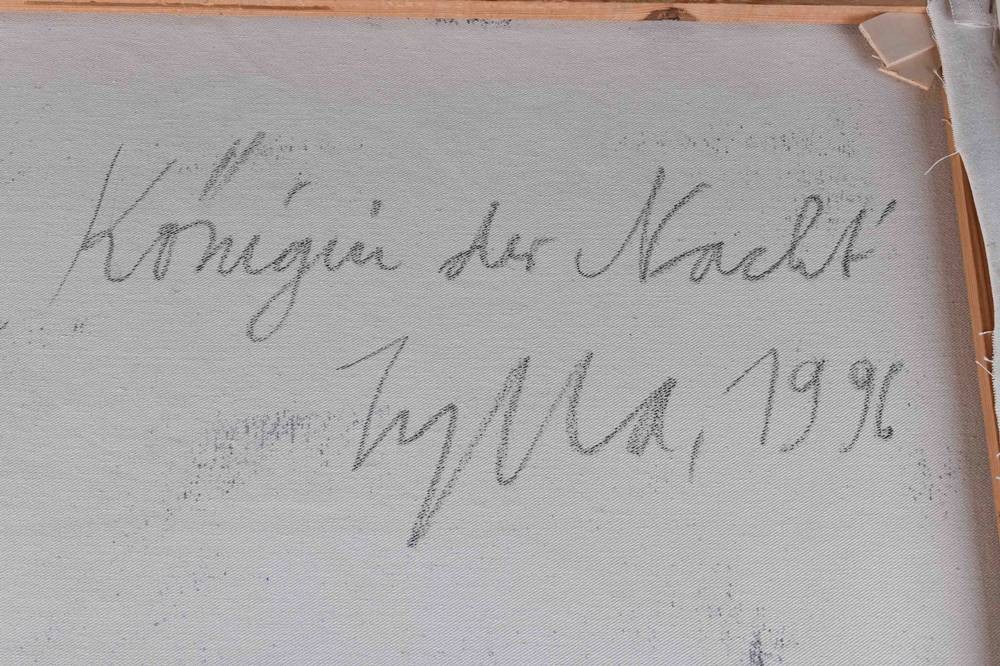 Königin der Nacht
Zylla, 1996